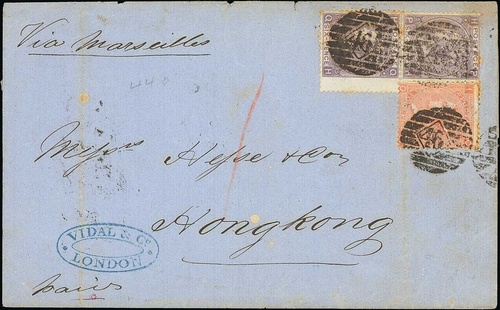 Via Marseilles
Messrs Hesse & Co
Hongkong
VIDAL & Co
LONDON